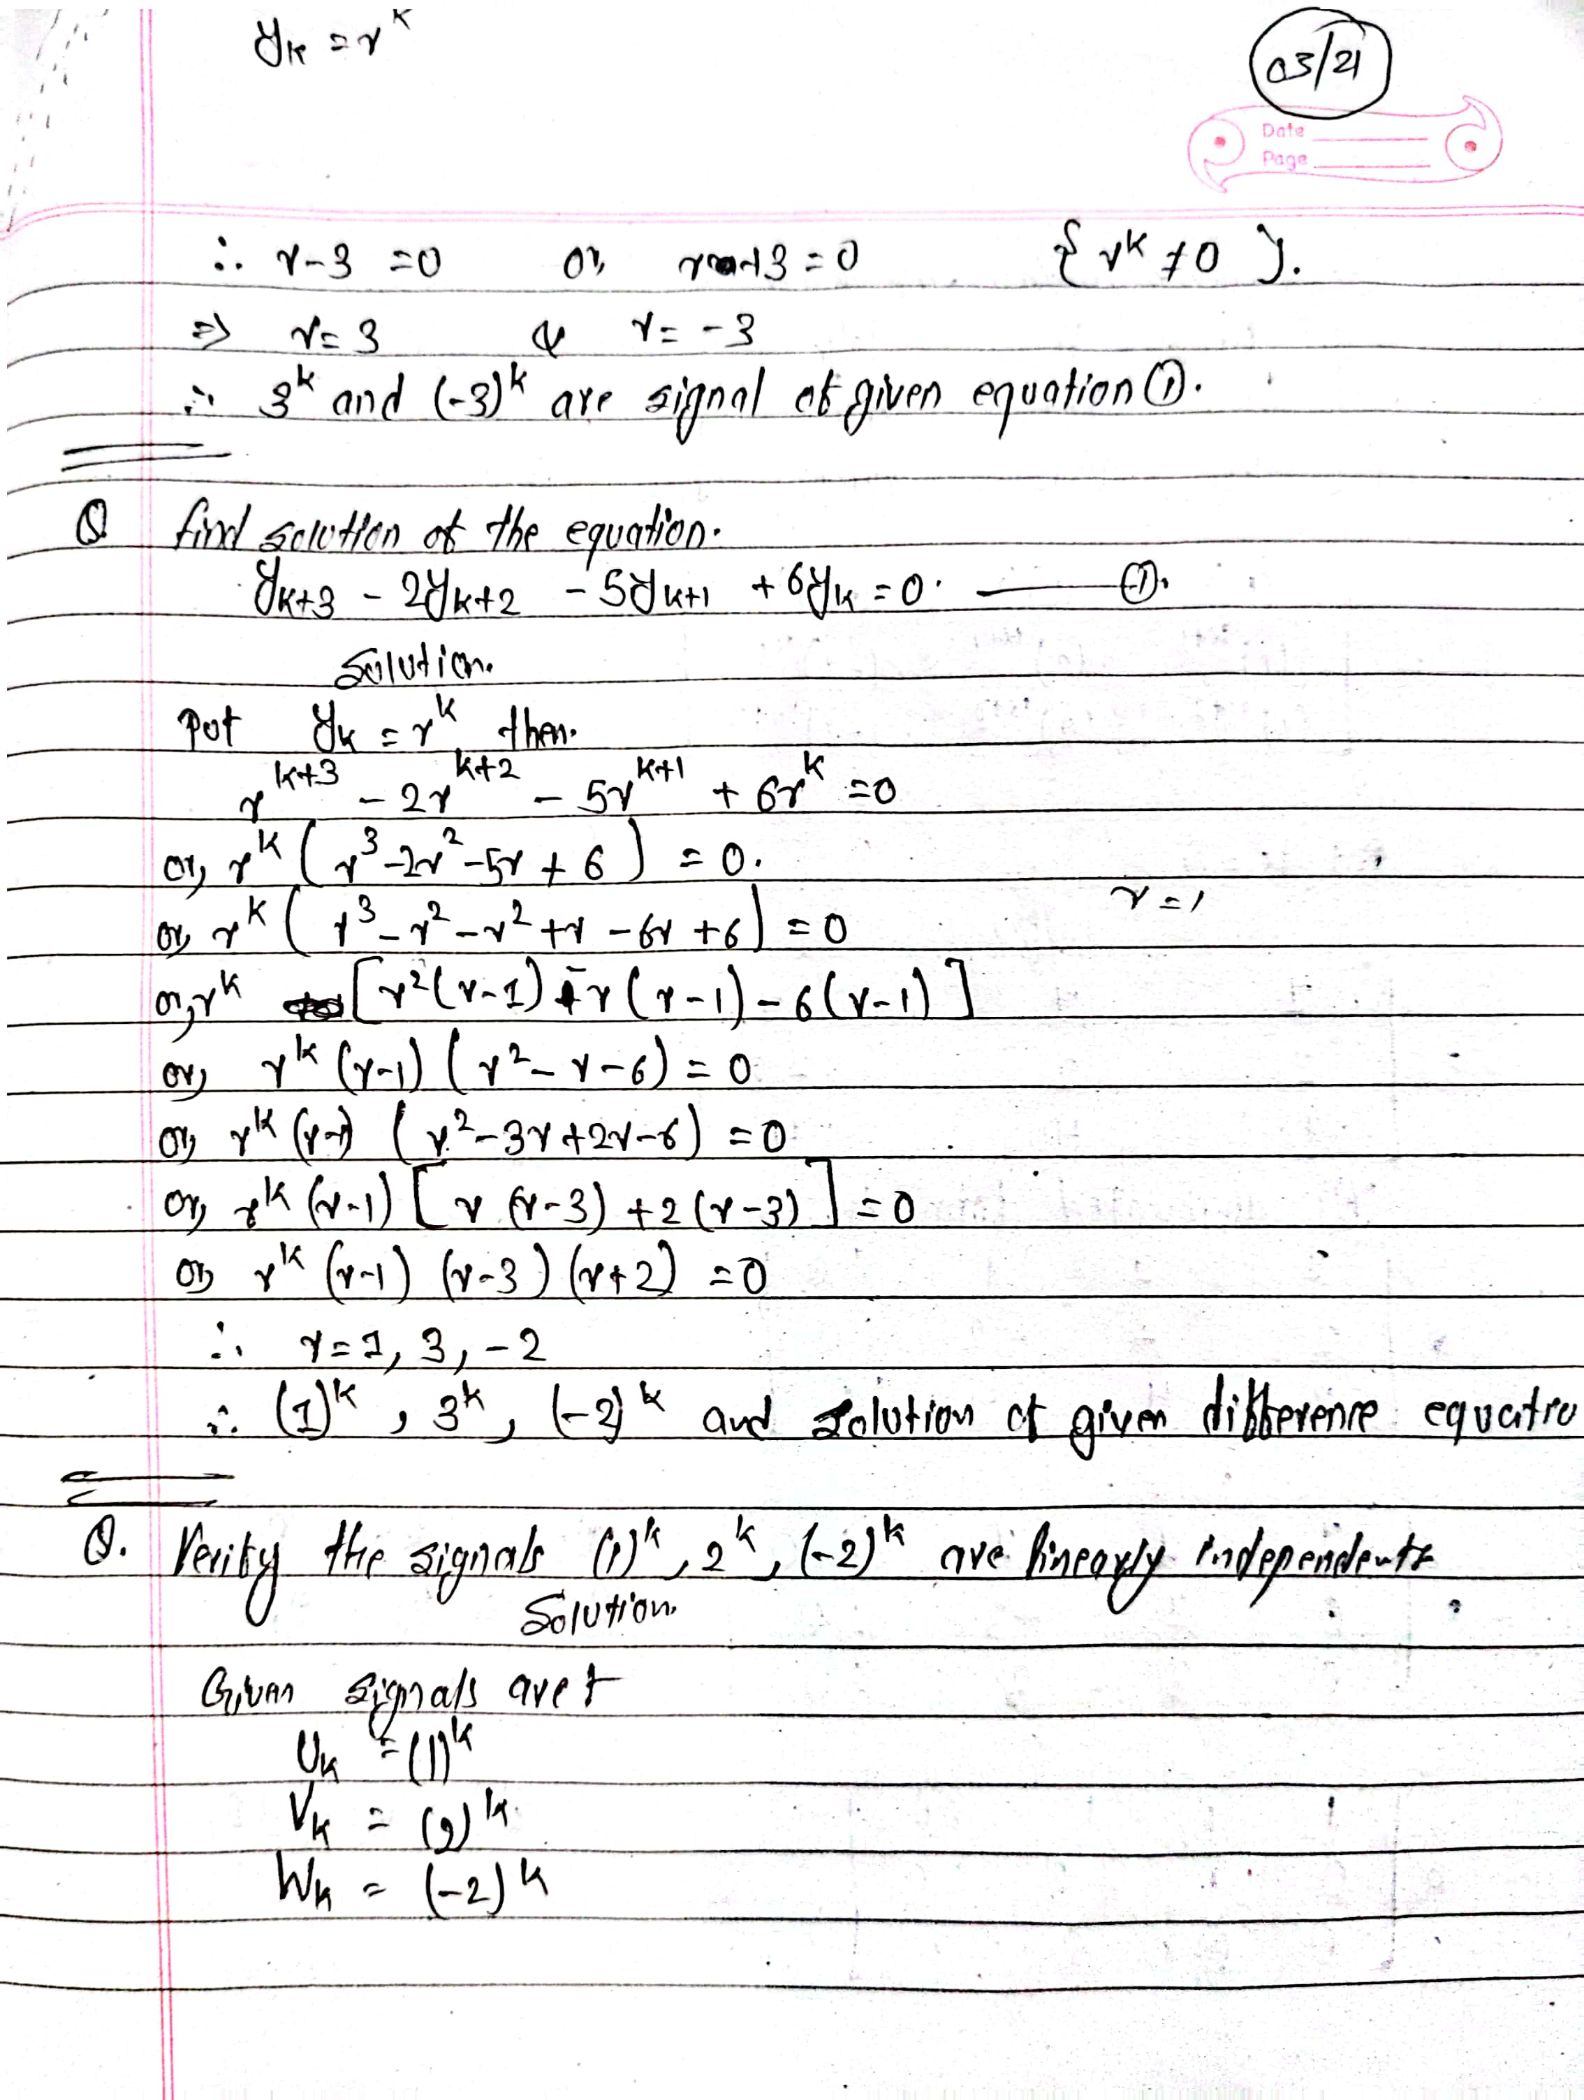 y_k = r^k
03/21
Date
Page
∴ r-3 = 0 or, r+3 = 0 { r^k ≠ 0 }.
⇒ r = 3 & r = -3
∴ 3^k and (-3)^k are signal of given equation ①.
Q find solution of the equation.
y_{k+3} - 2y_{k+2} - 5y_{k+1} + 6y_k = 0. ——— ①.
Solution.
Put y_k = r^k then.
r^{k+3} - 2r^{k+2} - 5r^{k+1} + 6r^k = 0
or, r^k ( r^3 - 2r^2 - 5r + 6 ) = 0.
r = 1
or, r^k ( r^3 - r^2 - r^2 + r - 6r + 6 ) = 0
or, r^k [ r^2 (r-1) - r (r-1) - 6 (r-1) ]
or, r^k (r-1) ( r^2 - r - 6 ) = 0
or, r^k (r-1) ( r^2 - 3r + 2r - 6 ) = 0
or, r^k (r-1) [ r (r-3) + 2 (r-3) ] = 0
or, r^k (r-1) (r-3) (r+2) = 0
∴ r = 1, 3, -2
∴ (1)^k , 3^k , (-2)^k and solution of given difference equatio
Q. Verify the signals (1)^k , 2^k , (-2)^k are linearly independent
Solution.
Given signals are
U_k = (1)^k
V_k = (2)^k
W_k = (-2)^k